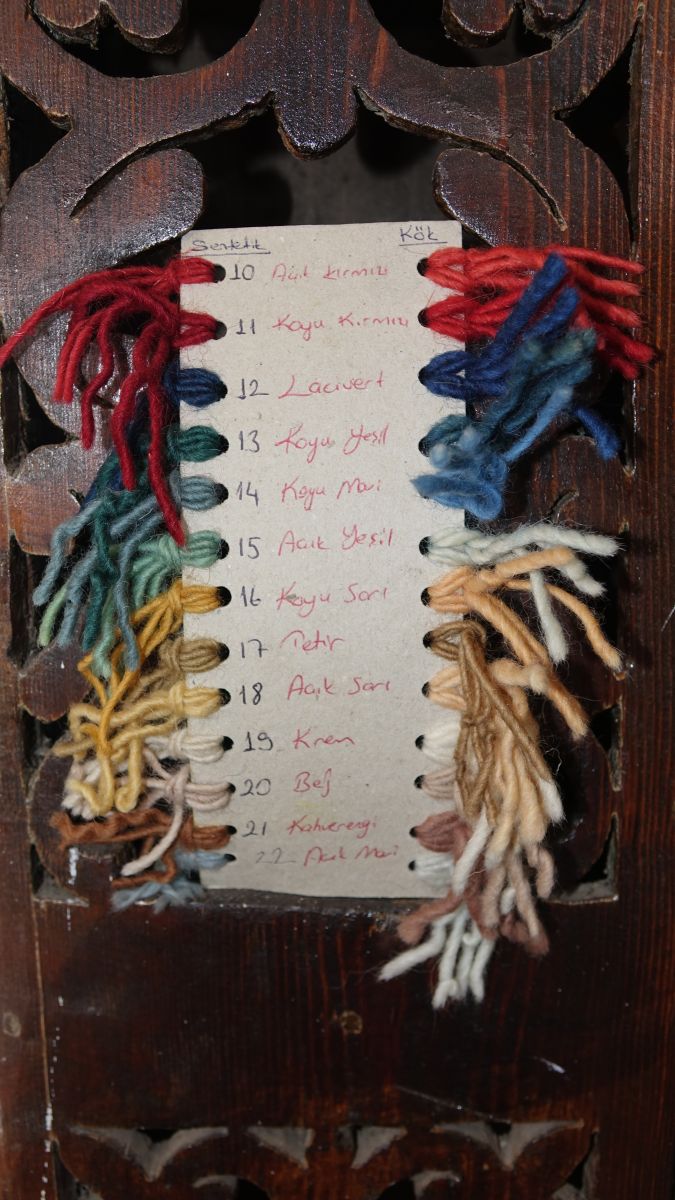 Sentetik Kök
10 Açık Kırmızı
11 Koyu Kırmızı
12 Lacivert
13 Koyu Yeşil
14 Koyu Mavi
15 Açık Yeşil
16 Koyu Sarı
17 Petir
18 Açık Sarı
19 Krem
20 Bej
21 Kahverengi
22 Açık Mavi